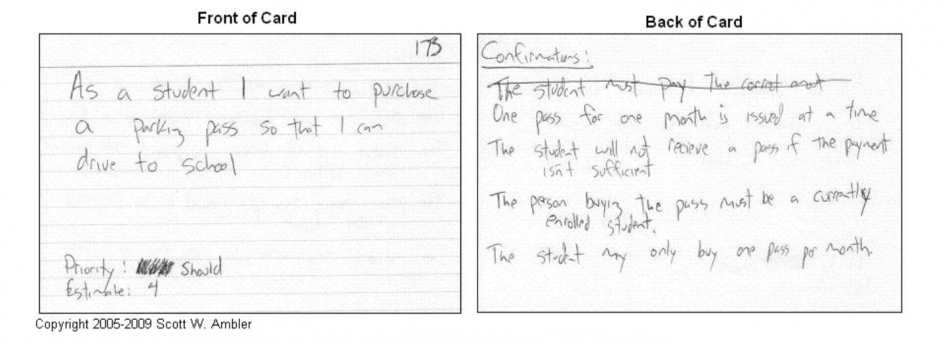 Front of Card
173
As a student I want to purchase
a parking pass so that I can
drive to school
Priority: Should
Estimate: 4
Copyright 2005-2009 Scott W. Ambler
Back of Card
Confirmations:
The student must pay the correct amt
One pass for one month is issued at a time
The student will not recieve a pass if the payment
isn't sufficient
The person buying the pass must be a currently
enrolled student.
The student may only buy one pass per month.